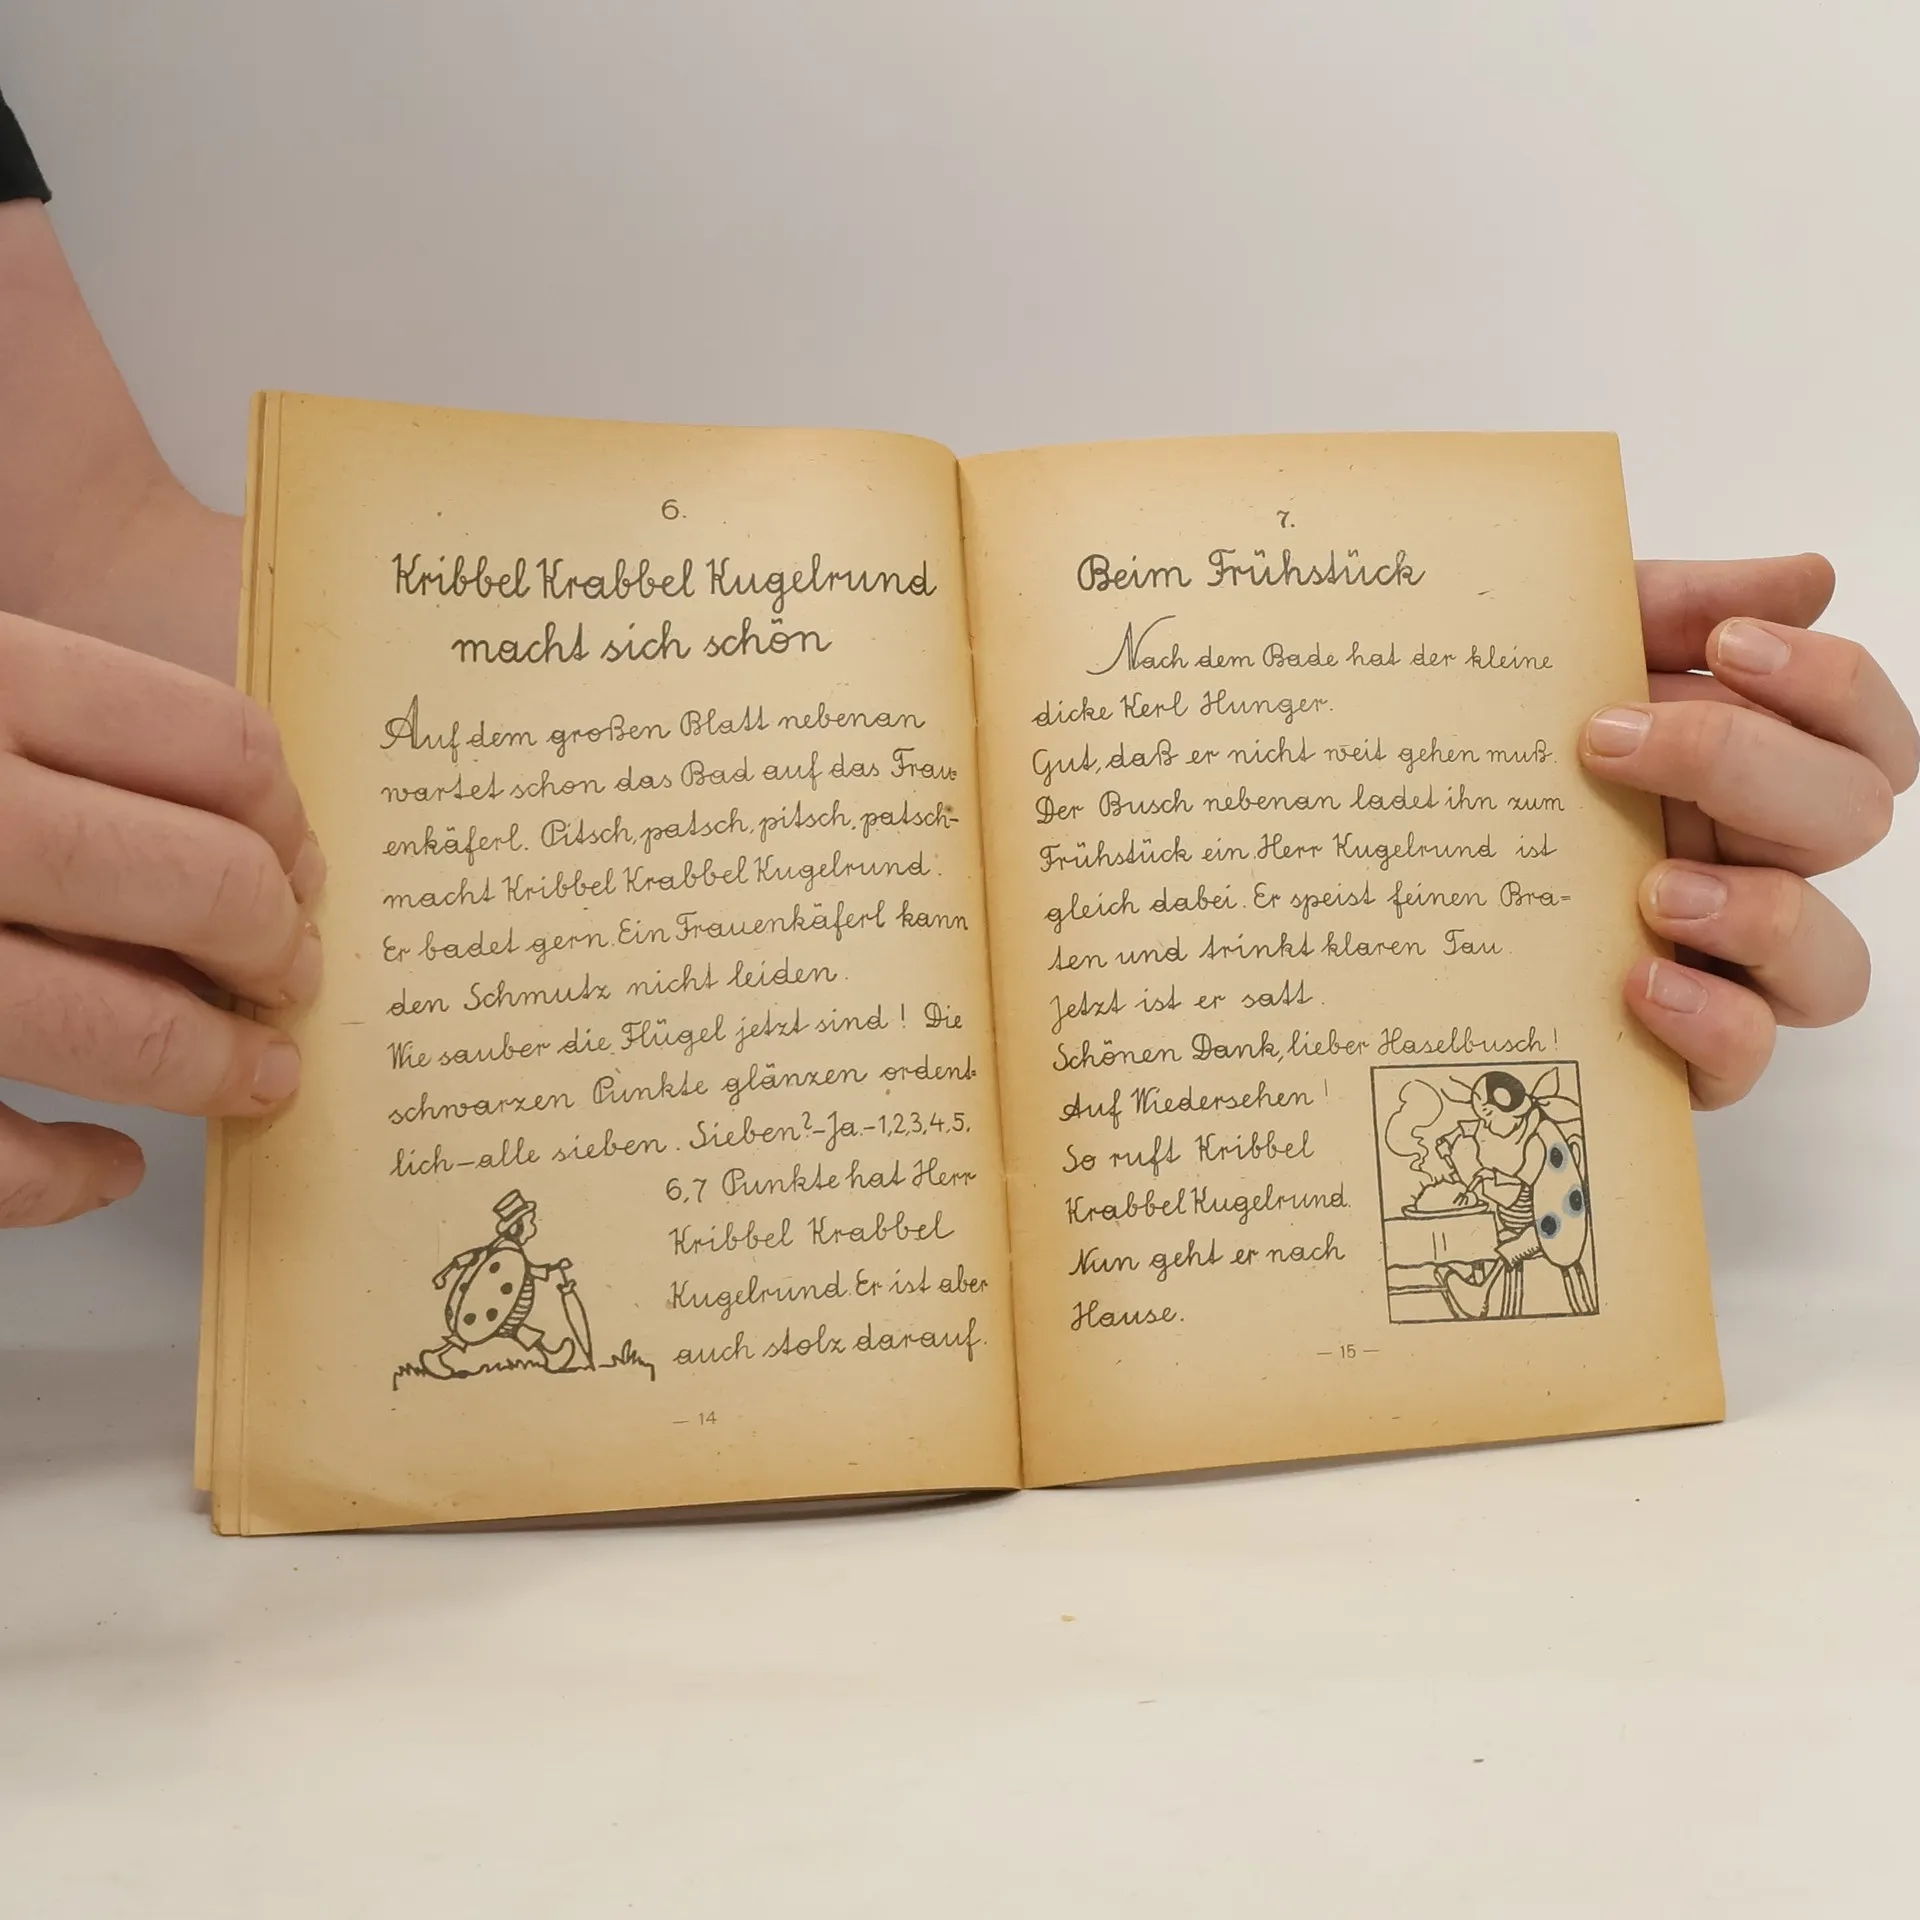 6.
Kribbel Krabbel Kugelrund
macht sich schön
Auf dem großen Blatt nebenan
wartet schon das Bad auf das Frau=
enkäferl. Pitsch, patsch, pitsch, patsch-
macht Kribbel Krabbel Kugelrund.
Er badet gern. Ein Frauenkäferl kann
den Schmutz nicht leiden.
Wie sauber die Flügel jetzt sind! Die
schwarzen Punkte glänzen ordent=
lich – alle sieben. Sieben? – Ja. – 1,2,3,4,5,
6,7 Punkte hat Herr
Kribbel Krabbel
Kugelrund. Er ist aber
auch stolz darauf.
— 14
7.
Beim Frühstück
Nach dem Bade hat der kleine
dicke Kerl Hunger.
Gut, daß er nicht weit gehen muß.
Der Busch nebenan ladet ihn zum
Frühstück ein. Herr Kugelrund ist
gleich dabei. Er speist feinen Bra=
ten und trinkt klaren Tau.
Jetzt ist er satt.
Schönen Dank, lieber Haselbusch!
Auf Wiedersehen!
So ruft Kribbel
Krabbel Kugelrund.
Nun geht er nach
Hause.
— 15 —